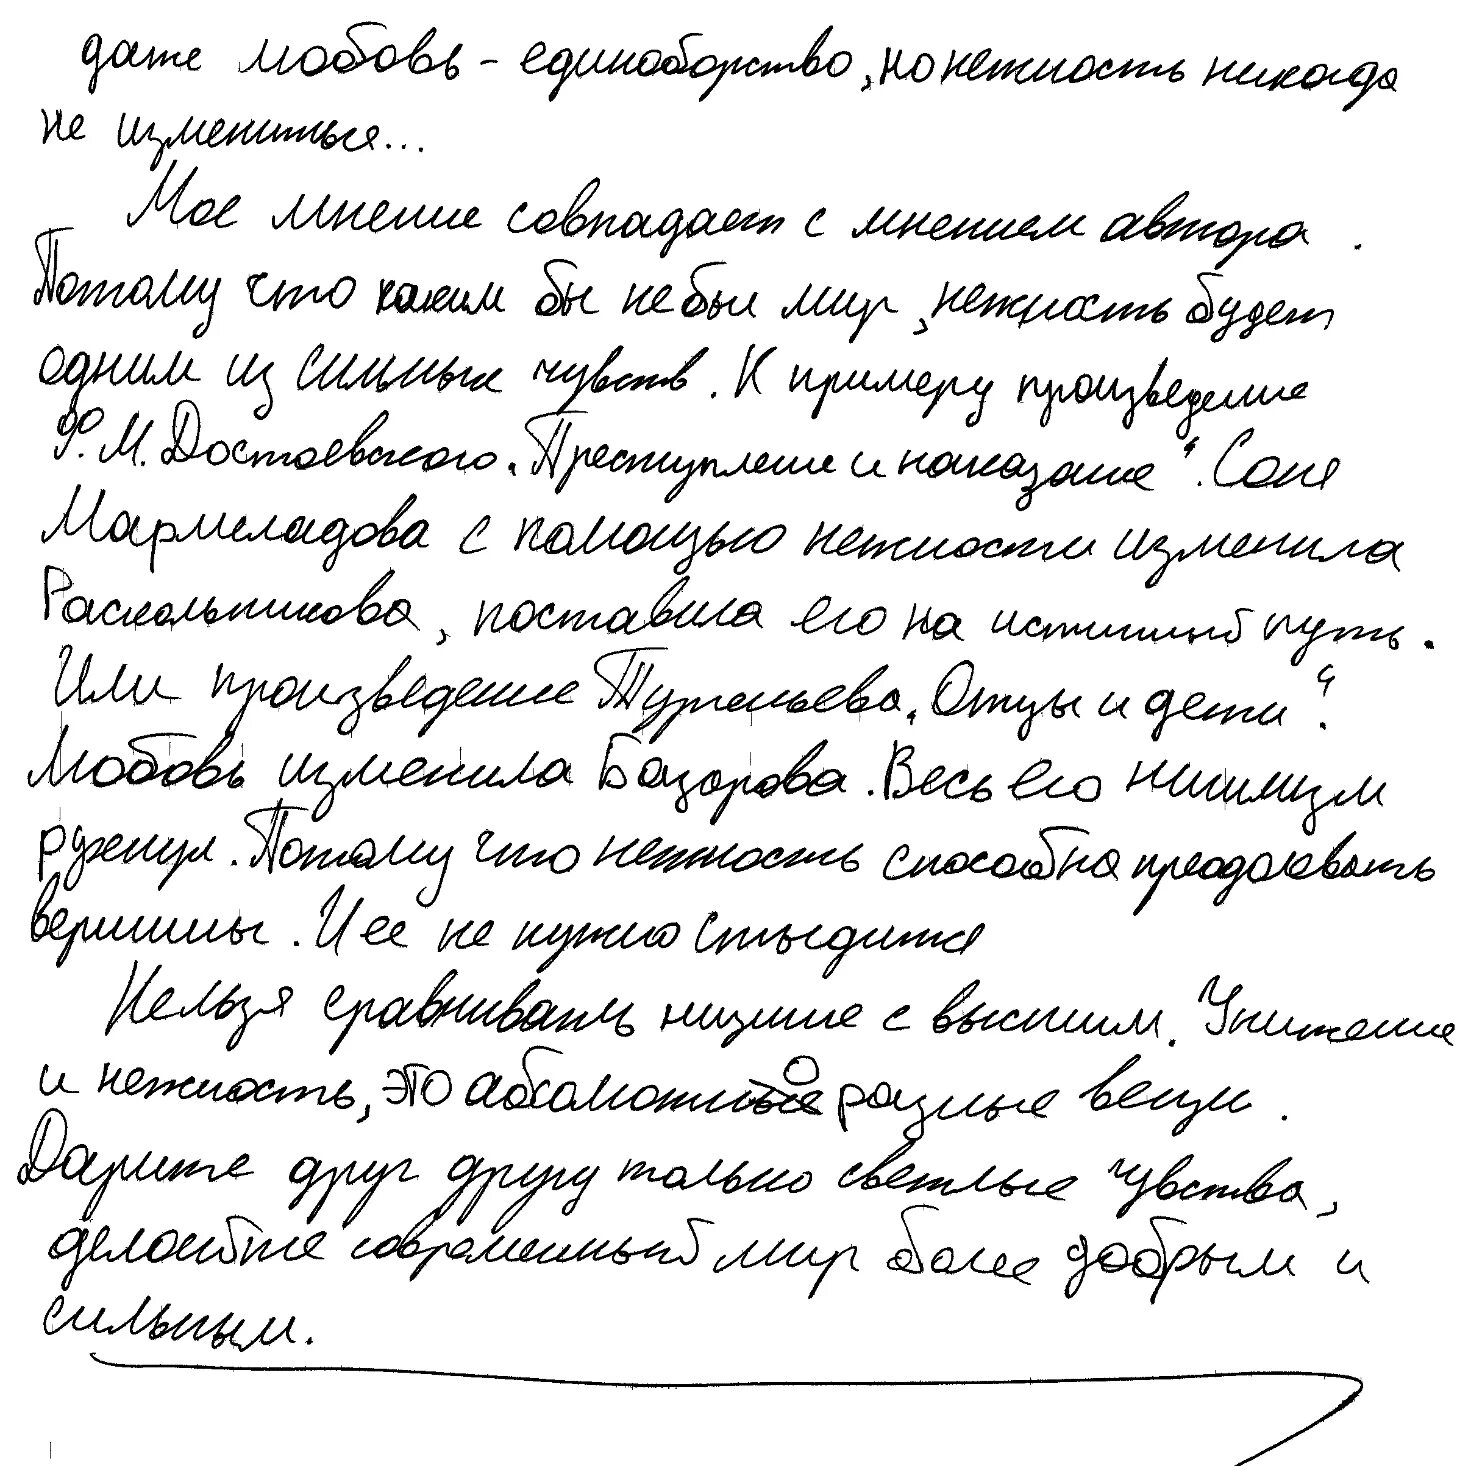 даже любовь - единоборство, но нежность никогда
не измениться...
Мое мнение совпадает с мнением автора .
Потому что каким бы не был мир, нежность будет
одним из сильных чувств. К примеру произведение
Ф. М. Достоевского „Преступление и наказание“. Соня
Мармеладова с помощью нежности изменила
Раскольникова, поставила его на истинный путь.
Или произведение Тургеньева „Отцы и дети“.
Любовь изменила Базарова. Весь его нигилизм
рухнул. Потому что нежность способна преодолевать
вершины. И ее не нужно стыдится
Нельзя сравнивать низшие с высшим. Унижение
и нежность, это абсолютно разные вещи.
Дарите друг другу только светлые чувства,
делайте современный мир более добрым и
сильным.